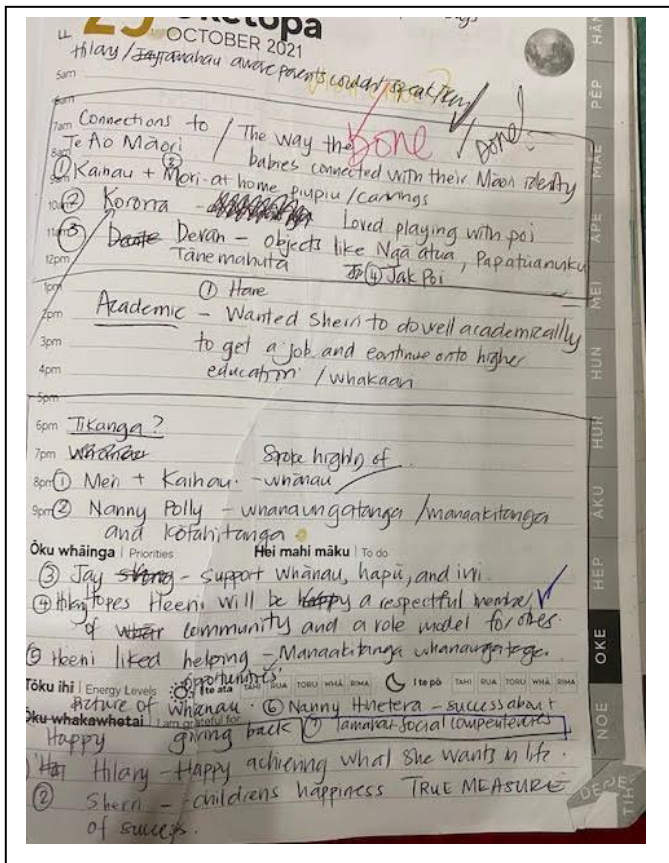 25 Oketopa
OCTOBER 2021
Hilary / Tamahau aware parents couldnt speak Te reo
5am
6am
7am Connections to / The way the Done Done!
8am Te Ao Māori babies connected with their Māori identity
9am ① Kaihau + Mori - at home piupiu / carvings
10am ② Korona - Loved playing with poi
11am ③ Devan - objects like Ngā atua, Papatuanuku
12pm Tāne mahuta ④ Jak Poi
1pm ① Hare
2pm Academic - Wanted Sherri to do well academically
3pm to get a job and continue onto higher
4pm education / whakaari
5pm
6pm Tikanga?
7pm Spoke highly of
8pm ① Meri + Kaihau - whānau
9pm ② Nanny Polly - whanaungatanga / manaakitanga
and kotahitanga
Ōku whāinga | Priorities Hei mahi māku | To do
③ Jay - support whānau, hapū, and iwi.
④ Hilary Hopes Heeni will be a respectful member
of community and a role model for
⑤ Heeni liked helping - Manaakitanga
opportunities
Tōku ihi | Energy Levels I te ata TAHI RUA TORU WHĀ RIMA I te pō TAHI RUA TORU WHĀ RIMA
Picture of whānau. ⑥ Nanny Hinetera - success about
Ōku whakawhetai | I am grateful for giving back ⑦ Tamahau social
Happy
Hilary - Happy achieving what she wants in life.
② Sherri - childrens happiness TRUE MEASURE
of success.
HĀN
PĒP
MĀE
ĀPE
MEI
HUN
HUR
ĀKU
HEP
OKE
NOE
TIH